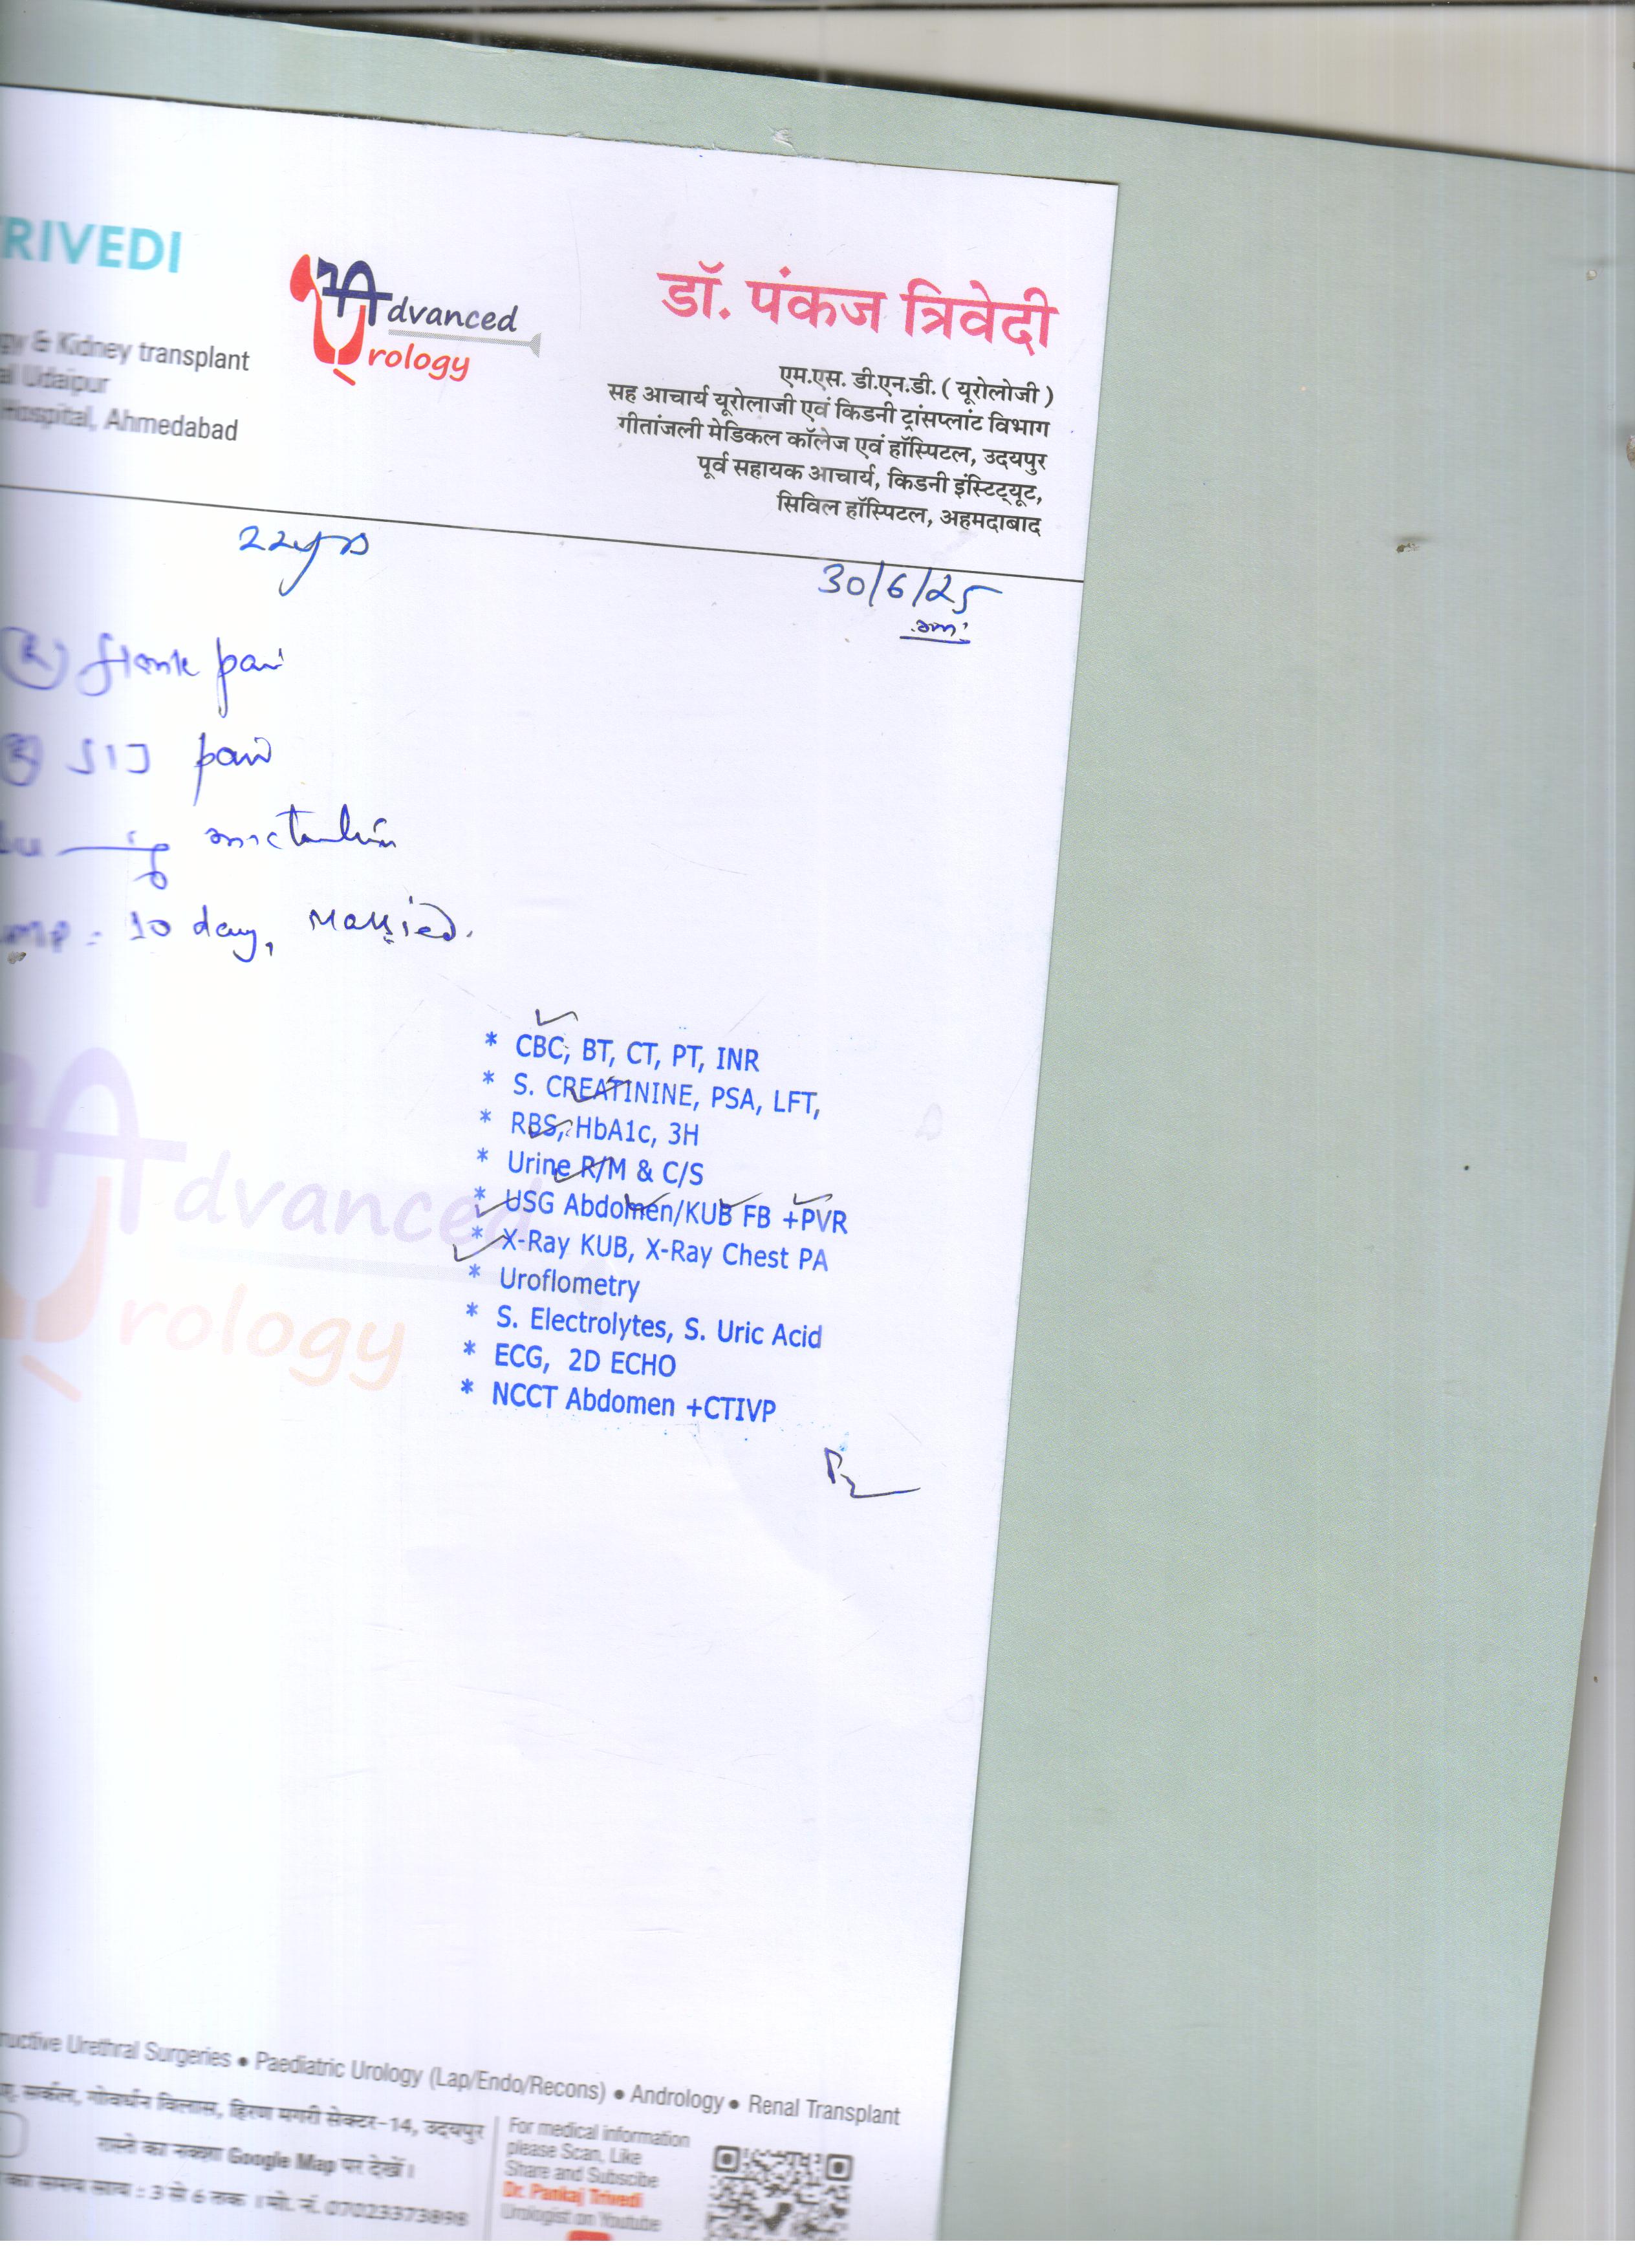 RIVEDI
Advanced
Urology
gy & Kidney transplant
al Udaipur
Hospital, Ahmedabad
डॉ. पंकज त्रिवेदी
एम.एस. डी.एन.डी. ( यूरोलोजी )
सह आचार्य यूरोलाजी एवं किडनी ट्रांसप्लांट विभाग
गीतांजली मेडिकल कॉलेज एवं हॉस्पिटल, उदयपुर
पूर्व सहायक आचार्य, किडनी इंस्टिट्यूट,
सिविल हॉस्पिटल, अहमदाबाद
22yrs
30/6/25
(R) flank pain
SIJ pain
micturition
LMP = 10 day, Married.
* CBC, BT, CT, PT, INR
* S. CREATININE, PSA, LFT,
* RBS, HbA1c, 3H
* Urine R/M & C/S
* USG Abdomen/KUB FB +PVR
* X-Ray KUB, X-Ray Chest PA
* Uroflometry
* S. Electrolytes, S. Uric Acid
* ECG, 2D ECHO
* NCCT Abdomen +CTIVP
Advanced
Urology
ructive Urethral Surgeries • Paediatric Urology (Lap/Endo/Recons) • Andrology • Renal Transplant
सर्कल, गोवर्धन विलास, हिरण मगरी सेक्टर-14, उदयपुर
रास्ते का नक्शा Google Map पर देखें।
का समय सायं : 3 से 6 तक । मो. नं. 07023373898
For medical information
please Scan, Like
Share and Subscibe
Dr. Pankaj Trivedi
Urologist on Youtube